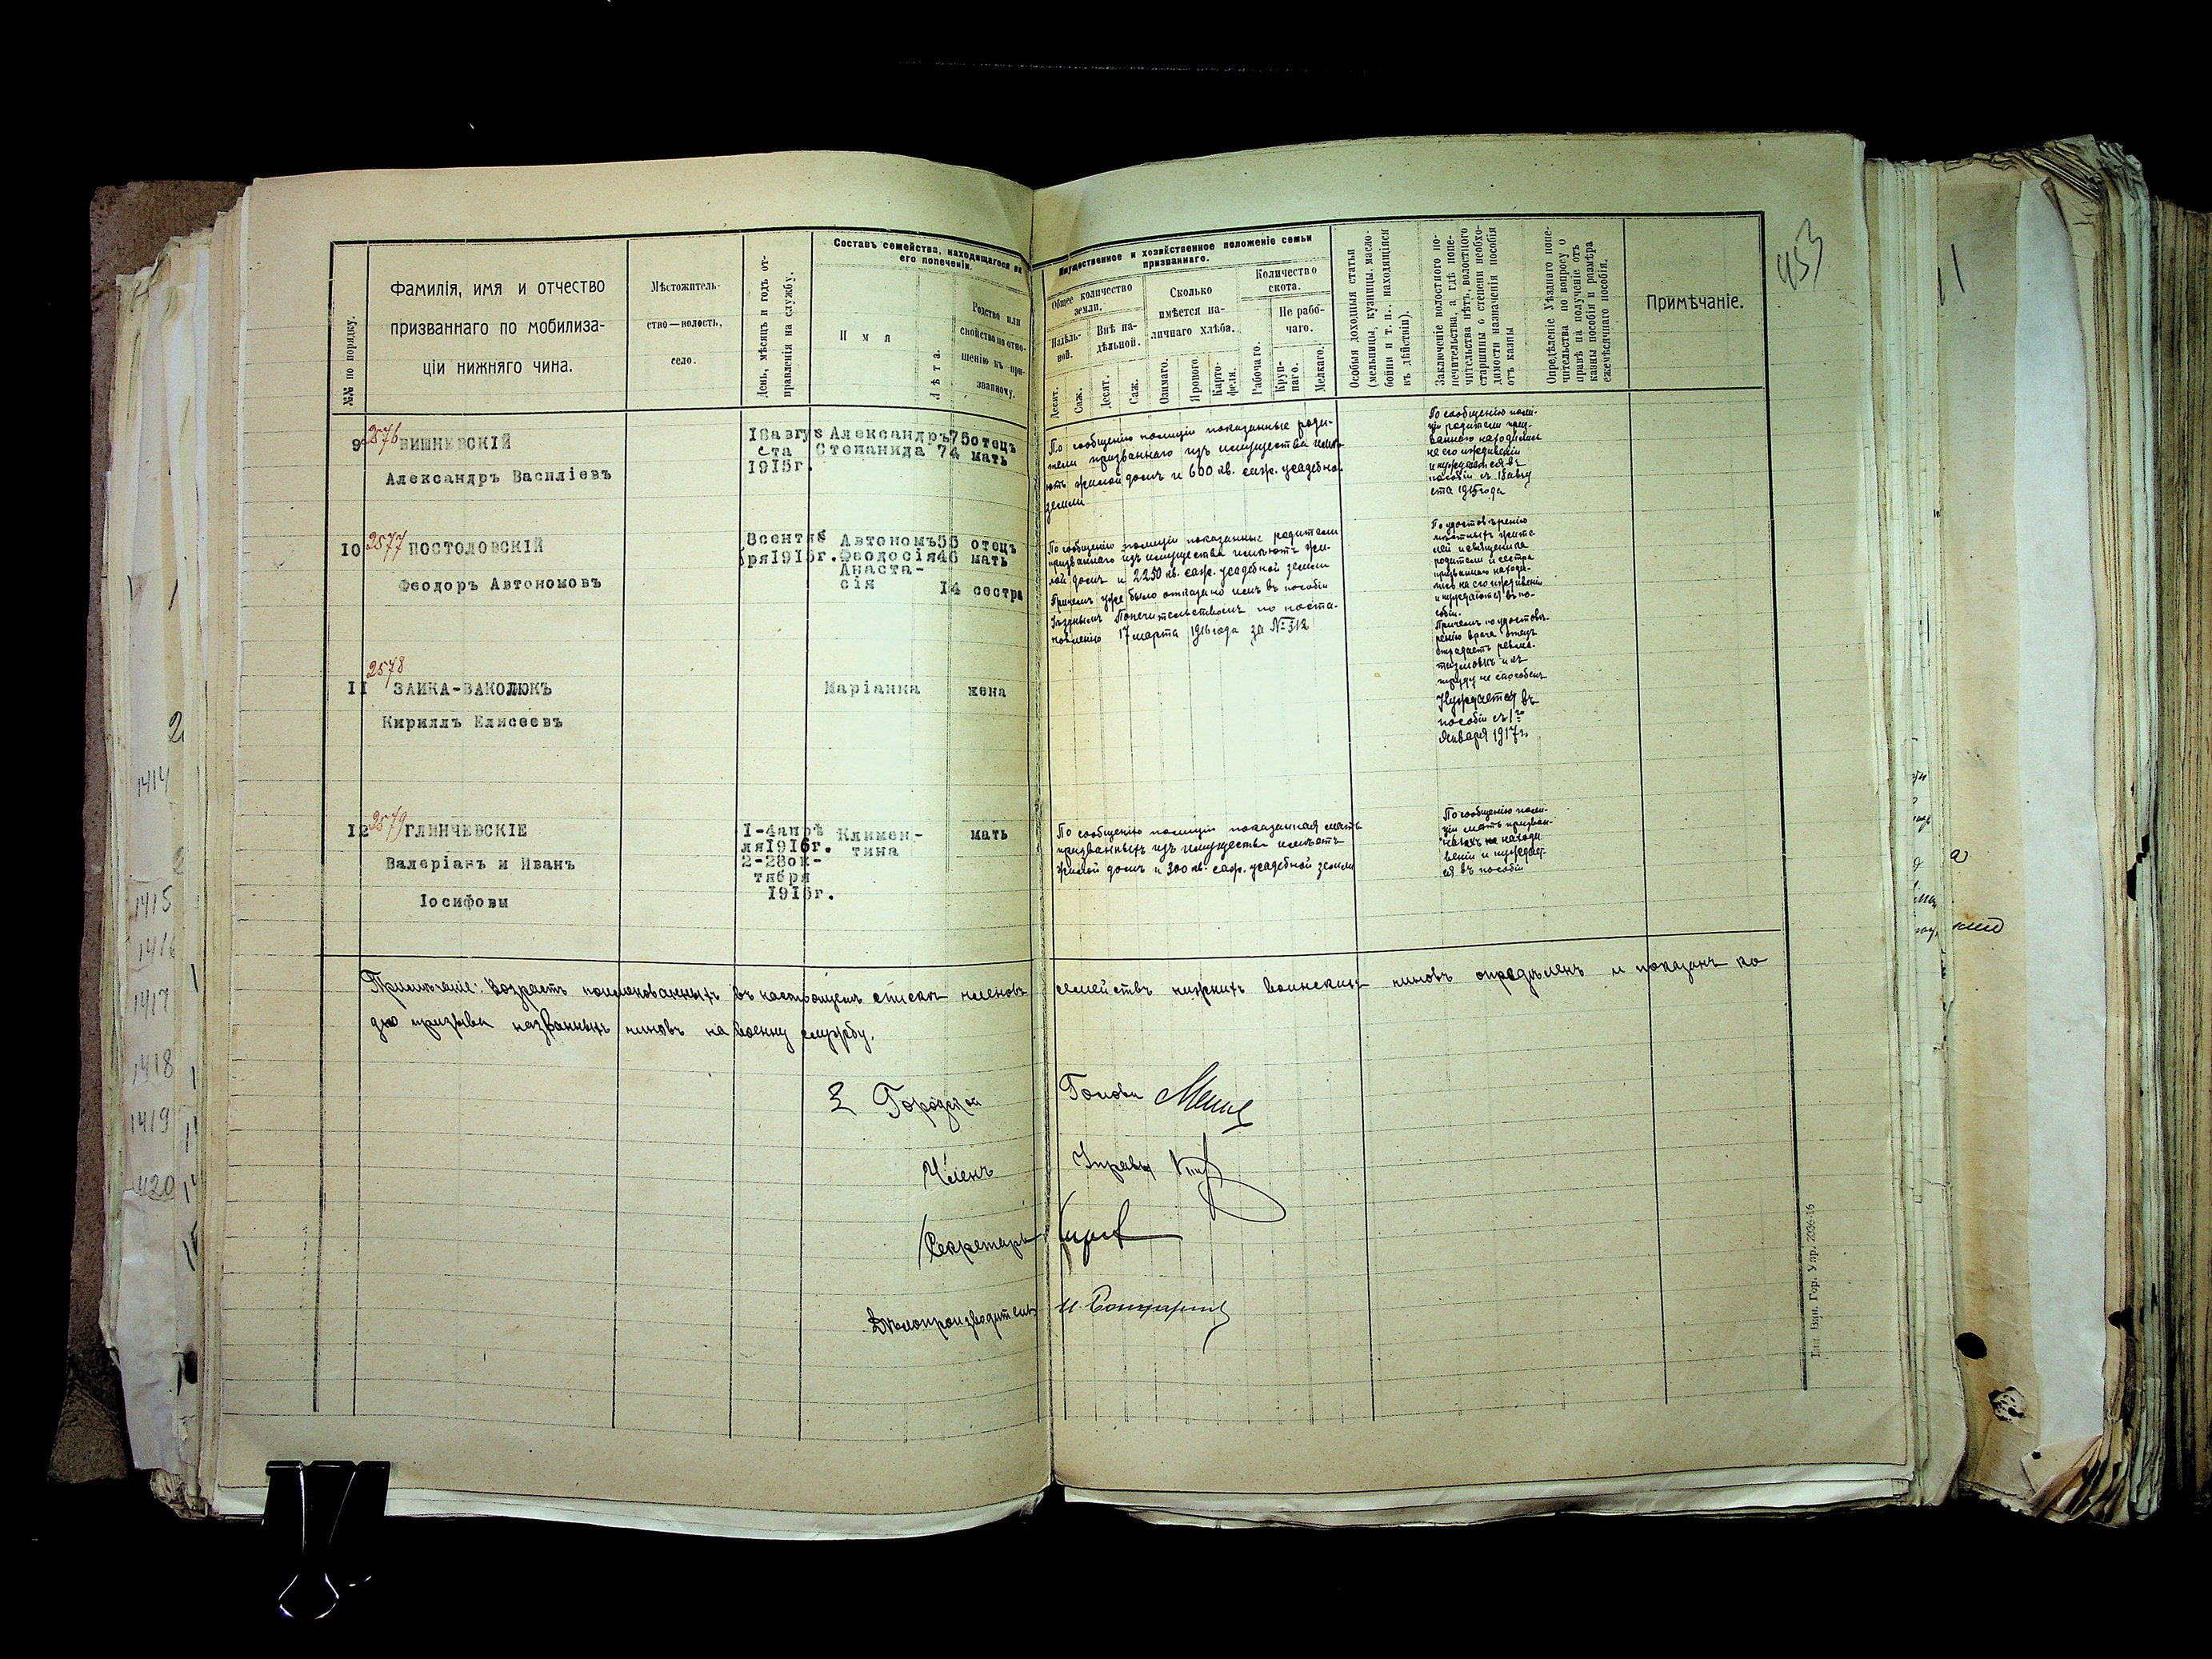 453
№№ по порядку.
Фамилія, имя и отчество
призваннаго по мобилиза-
ціи нижняго чина.
Мѣстожитель-
ство—волость,
село.
День, мѣсяцъ и годъ от-
правленія на службу.
Составъ семейства, находящагося на
его попеченіи.
Имя
Лѣта.
Родство или
свойство по отно-
шенію къ при-
званному.
Имущественное и хозяйственное положеніе семьи
призваннаго.
Общее количество
земли.
Надѣль-
ной.
Внѣ на-
дѣльной.
Десят.
Саж.
Десят.
Саж.
Сколько
имѣется на-
личнаго хлѣба.
Озимаго.
Ярового.
Карто-
феля.
Количество
скота.
Рабочаго.
Не рабо-
чаго.
Круп-
наго.
Мелкаго.
Особыя доходныя статьи
(мельницы, кузницы, масло-
бойни и т. п., находящіяся
въ дѣйствіи).
Заключеніе волостного по-
печительства, а гдѣ попе-
чительства нѣтъ, волостного
старшины о степени необхо-
димости назначенія пособія
отъ казны
Опредѣленіе Уѣзднаго попе-
чительства по вопросу о
правѣ на полученіе отъ
казны пособія и размѣра
ежемѣсячнаго пособія.
Примѣчаніе.
9 2576 ВИШНЕВСКІЙ
Александръ Василіевъ
18авгус
ста
1915г.
Александръ 75 отецъ
Степанида 74 мать
По сообщенію полиціи показанные роди-
тели призваннаго изъ имущества имѣ-
ютъ жилой домъ и 600 кв. саж. усадебной
земли
По сообщенію поли-
ціи родители приз-
ваннаго находились
на его иждивеніи
и нуждаются въ
пособіи съ 18 авгу
ста 1915 года
10 2577 ПОСТОЛОВСКІЙ
Феодоръ Автономовъ
8сентя
бря1915г.
Автономъ 55 отецъ
Феодосія 46 мать
Анаста-
сія 14 сестра
По сообщенію полиціи показанные родители
призваннаго изъ имущества имѣютъ жи-
лой домъ и 2250 кв. саж. усадебной земли
Причемъ уже было отказано имъ въ пособіи
Уѣзднымъ Попечительствомъ по поста-
новленію 17 марта 1916 года за № 312
По удостовѣренію
мѣстныхъ жите-
лей и священника
родители и сестра
призваннаго находи-
лись на его иждивеніи
и нуждаются въ по-
собіи.
Причемъ по удостовѣ-
ренію врача отецъ
страдаетъ ревма-
тизмомъ и къ
труду не способенъ
11 2578 ЗАИКА-ВАКОЛЮКЪ
Кириллъ Елисеевъ
Маріанна жена
Нуждается въ
пособіи съ 1го
Января 1917г.
12 2579 ГЛИНЧЕВСКІЕ
Валеріанъ и Иванъ
Іосифовы
1-4апрѣ
ля1916г.
2-28ок-
тября
1915г.
Климен-
тина
мать
По сообщенію полиціи показанная мать
призванныхъ изъ имущества имѣетъ
жилой домъ и 300 кв. саж. усадебной земли
По сообщенію поли-
ціи мать призван-
ныхъ на
и нуждает-
ся въ пособіи
Примѣчаніе: Возрастъ поименованныхъ въ настоящемъ списки членовъ семействъ нижнихъ воинскихъ чиновъ опредѣленъ и показанъ ко
дню призыва названныхъ чиновъ на военну службу.
Городской Голова
Членъ Управы
Секретарь
Дѣлопроизводитель
Тип. Вин. Гор. Упр. 2036-16
1414
1415
1416
1417
1418
1419
1420